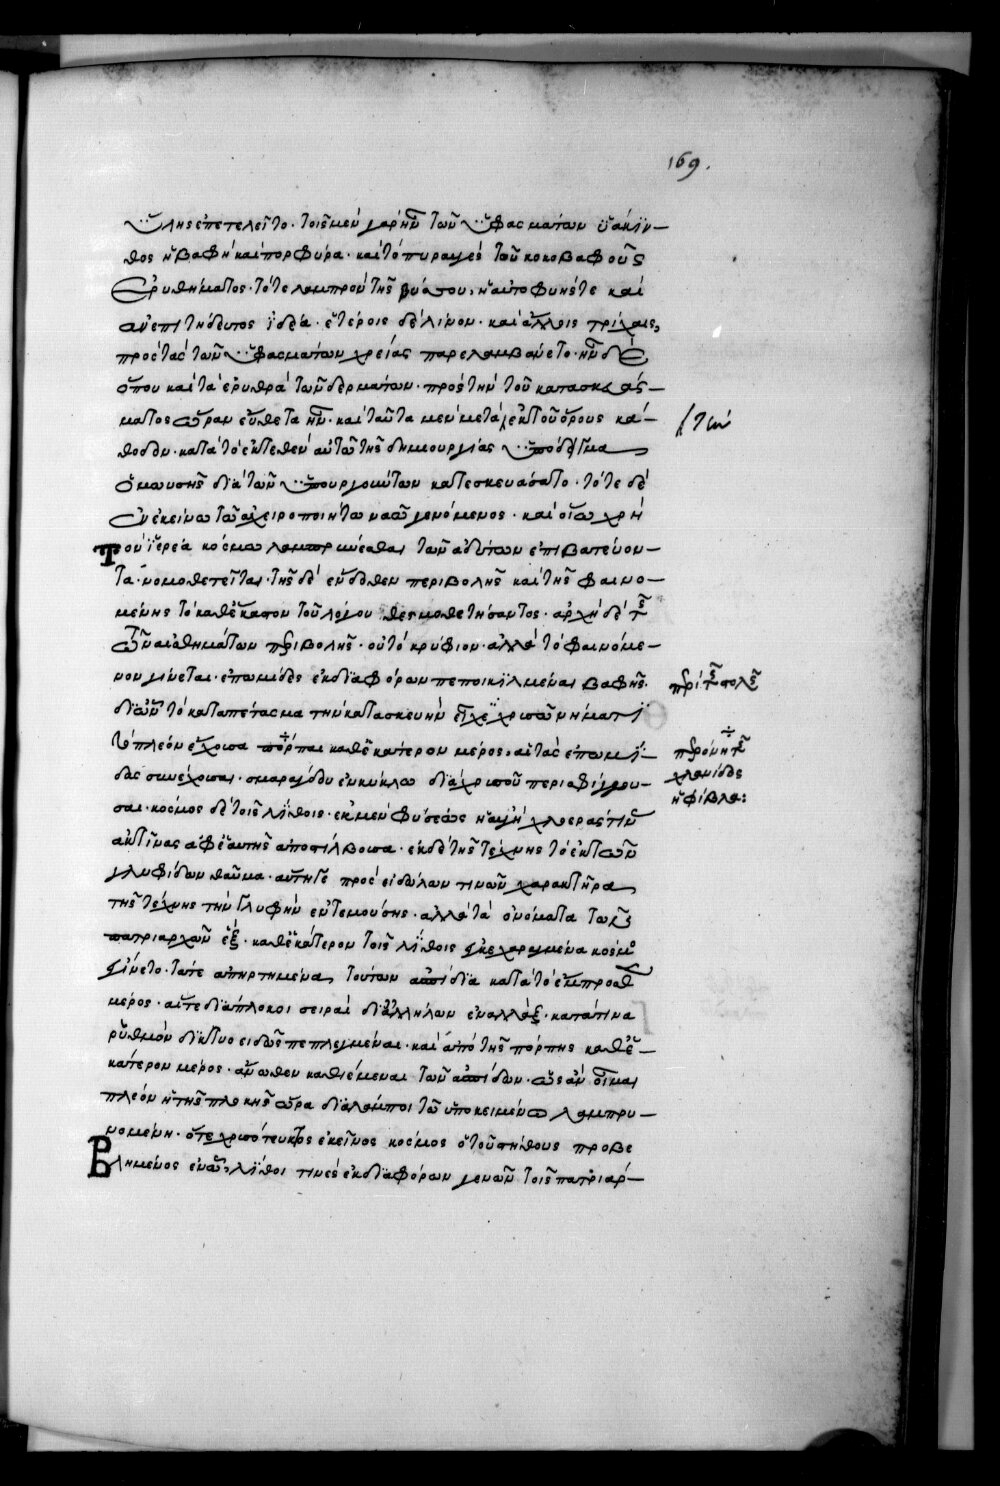 169.
ὕλης ἐπετελεῖτο· τοῖς μὲν γὰρ ἦν τῶν ὑφασμάτων ὑάκιν-
θος ἡ βαφὴ καὶ πορφύρα· καὶ τὸ πυραυγὲς τοῦ κοκοβαφοῦς
ἐρυθήματος· τό τε λαμπρὸν τῆς βύσσου, ἡ αὐτοφυής τε καὶ
ἀνεπιτήδευτος ἰδέα· ἑτέροις δὲ λίνον· καὶ ἄλλοις τρίχαις,
πρὸς τὰς τῶν ὑφασμάτων χρείας παρελαμβάνετο· ἦν δὲ
ὅπου καὶ τὰ ἐρυθρὰ τῶν δερμάτων· πρὸς τὴν τοῦ κατασκευάσ-
ματος ὥραν εὔθετα ἦν· καὶ ταῦτα μὲν μετὰ ἐκ τοῦ ὄρους κά-
/ τὴν
θοδον· κατὰ τὸ ἐκτεθὲν αὐτῶ τῆς δημιουργίας ὑπόδειγμα
ὁ μωυσῆς διὰ τῶν ὑπουργούντων κατεσκευάσατο· τότε δὲ
ἐν ἐκείνω τῶ ἀχειροποιήτω ναῶ γενόμενος· καὶ οἵω χρὴ
τὸν ἱερέα κόσμω λαμπρύνεσθαι τῶν ἀδύτων ἐπιβατεύον-
τα· νομοθετεῖται· τῆς δὲ ἔνδοθεν περιβολῆς καὶ τῆς φαινο-
μένης τὸ καθέκαστον τοῦ λόγου θεσμοθετήσαντος· ἀρχὴ δὲ τῆς
τῶν αἰσθημάτων περιβολῆς· οὐ τὸ κρύφιον· ἀλλὰ τὸ φαινόμε-
νον γίνεται· ἐπωμίδες ἐκ διαφόρων πεποικιλμέναι βαφῆς·
περὶ τῆς στολῆς
δι' ὧν τὸ καταπέτασμα τὴν κατασκευὴν εἶχε χρυσῶ νήματι
τὸ πλέον ἔχουσα πόρπαι καθ' ἑκάτερον μέρος, αἱ τὰς ἐπωμί-
περόνη τῆς
χλανίδος
ἢ φίβλα:
δας συνέχουσαι· σμαράγδου ἐν κύκλω διὰ χρυσοῦ περισφίγγου-
σαι· κόσμος δὲ τοῖς λίθοις· ἐκ μὲν φύσεως ἡ αὐγὴ χλοερὰς τὰς
ἀκτῖνας ἀφ' ἑαυτῆς ἀποστίλβουσα· ἐκ δὲ τῆς τέχνης τὸ ἐκ τῶν
γλυφίδων θαῦμα· αὕτη γε πρὸς εἰδώλων τινῶν χαρακτῆρα
τῆς τέχνης τὴν γλυφὴν ἐντεμούσης· ἀλλὰ τὰ ὀνόματα τῶν
πατριαρχῶν ἓξ· καθ' ἑκάτερον τοῖς λίθοις ἐγκεχαραγμένα κόσμος
ἐγίνετο· τά τε ἀπηρτημένα τούτων ἀσπίδια κατὰ τὸ ἔμπροσθεν
μέρος· αἵ τε διάπλοκοι σειραὶ δι' ἀλλήλων ἐναλλὰξ· κατά τινα
ῥυθμὸν δικτυοειδῶς πεπλεγμέναι· καὶ ἀπὸ τῆς πόρπης καθ' ἑ-
κάτερον μέρος· ἄνωθεν καθιέμεναι τῶν ἀσπίδων· ὡς ἂν οἶμαι
πλέον ἡ τῆς πλοκῆς ὥρα διαλάμποι τῶ ὑποκειμένω λαμπρυ-
νομένη· ὅ τε χρυσότευκτος ἐκεῖνος κόσμος ὁ τοῦ στήθους προβε
βλημένος ἐν ὧ, λίθοι τινὲς ἐκ διαφόρων γενῶν τοῖς πατριάρ-